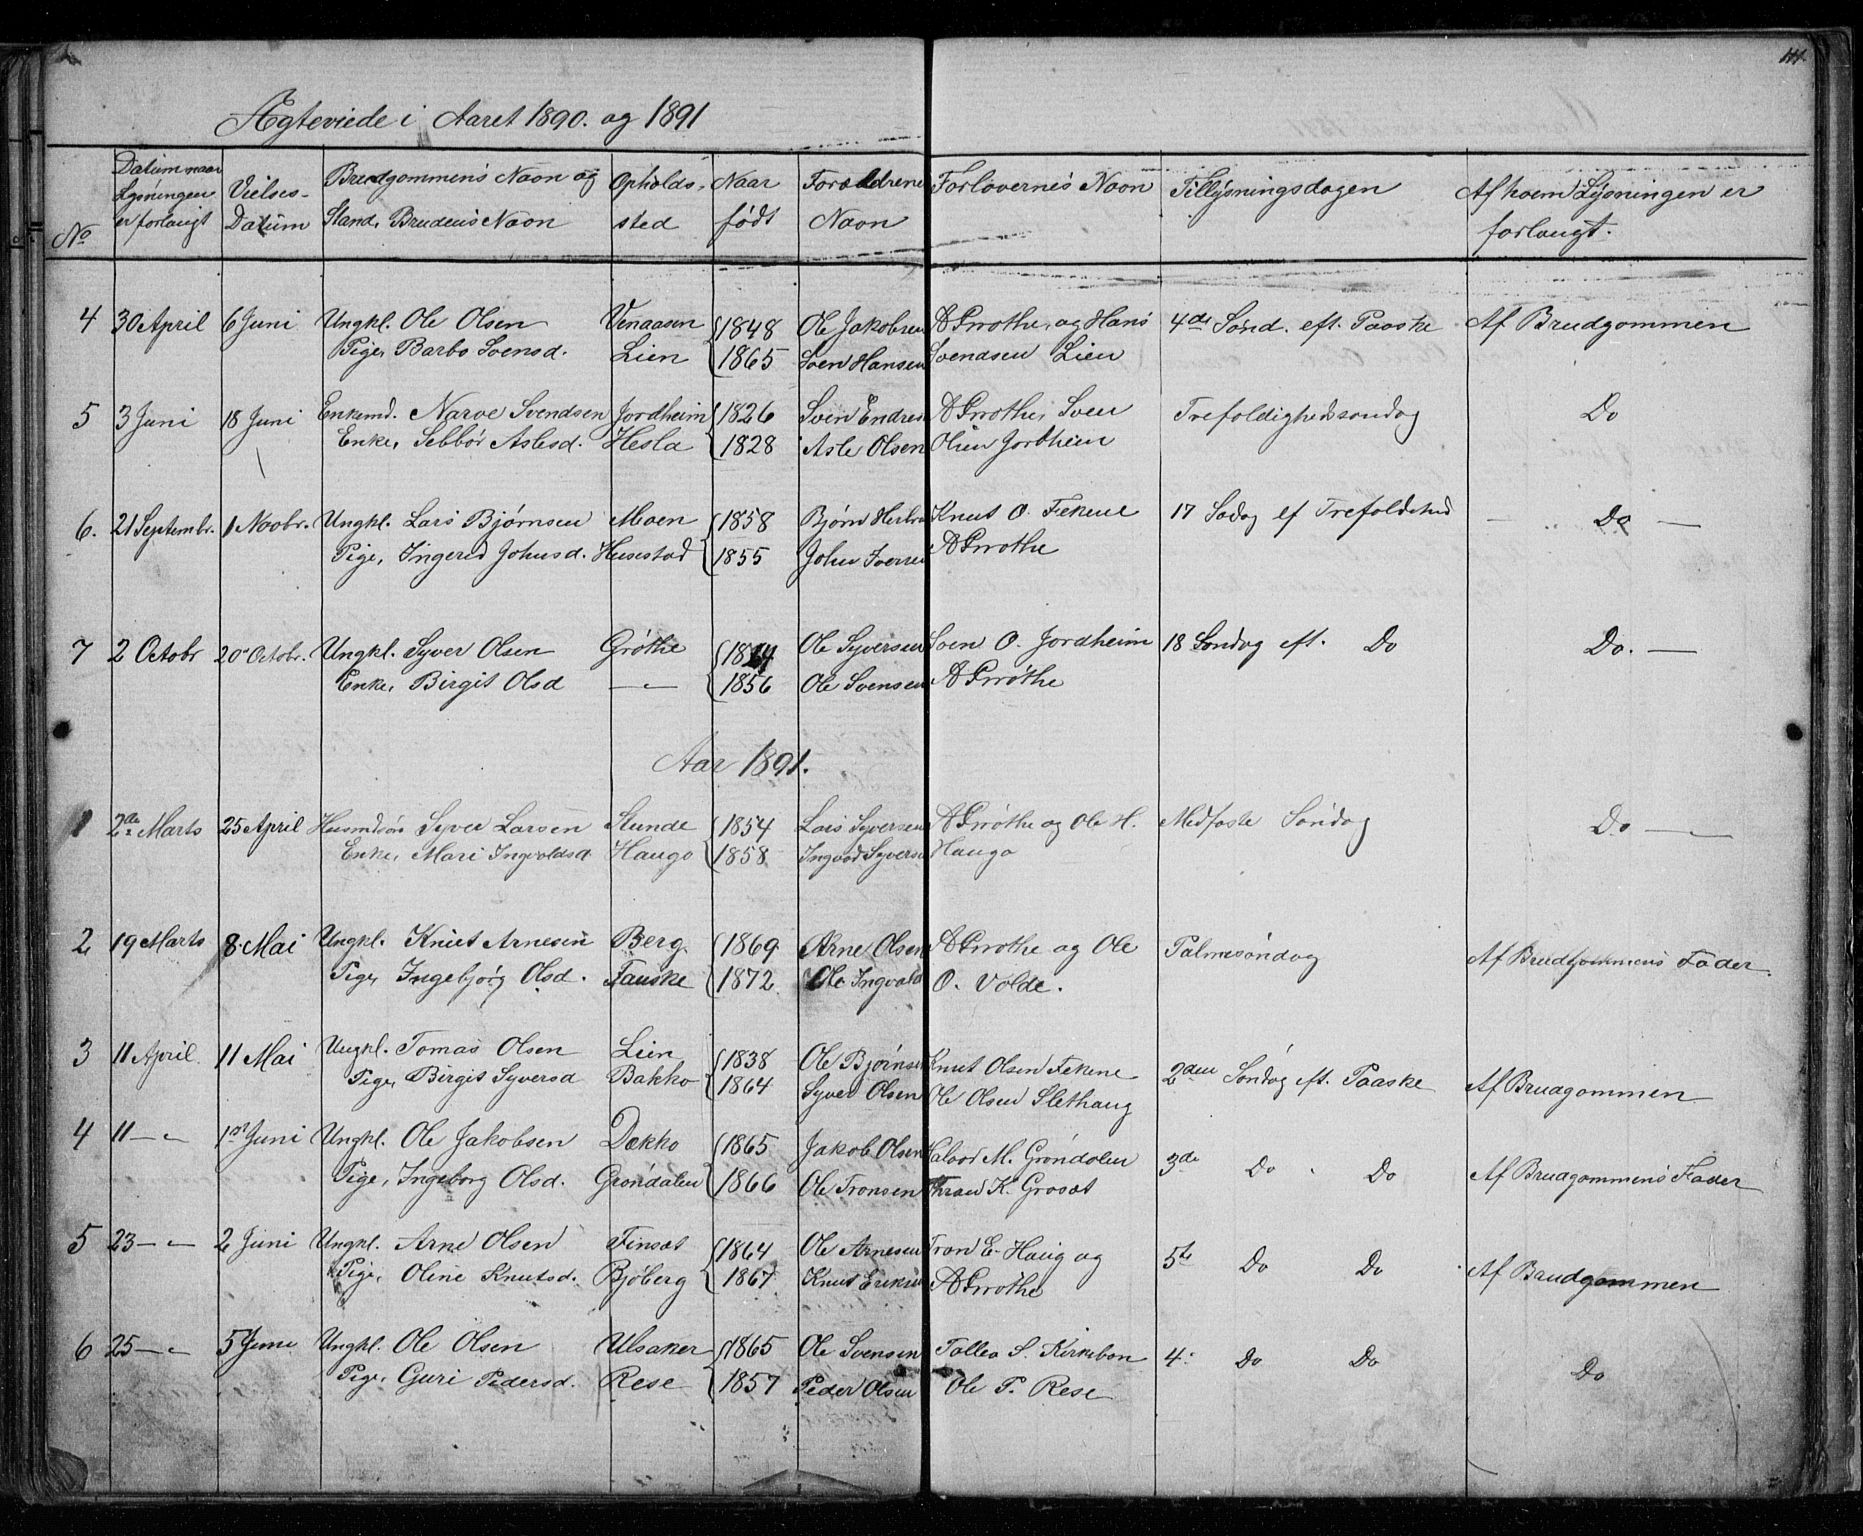 111.
Ægteviede i Aaret 1890. og 1891
No
Datum naar Lysningen er forlangt
Vielses-Datum
Brudgommens Navn og Stand, Brudens Navn
Opholds-sted
Naar født
Forældrene Navn
Forlovernes Navn
Tillysningsdagen
Af hvem Lysningen er forlangt.
4 30 April 6 Juni Ungkl. Ole Olsen Venaasen 1848 Ole Jakobsen A Grøthe, og Hans 4de Sønd. eft. Paaske Af Brudgommen
Pige, Barbo Svensd. Lien 1865 Sven Hansen Svendsen Lien
5 3 Juni 18 Juni Enkemd. Narve Svendsen Jordheim 1826 Sven Endres A Grøthe, Sven Trefoldighedssøndag Do
Enke, Sebbør Aslesd. Hesla 1828 Asle Olsen Olsen Jordheim
6. 21 Septembr. 1 Novbr. Ungkl. Lars Bjørnsen Moen 1858 Bjørn Knut O. Fekene 17 Sødag ef Trefoldshed — " Do —
Pige, Ingered Johnsd. Husestad 1855 John Iversen A Grøthe
7 2 Octobr 20 Octobr. Ungkl. Syver Olsen Grøthe Ole Syversen Sven O. Jordheim 18 Søndag eft. Do Do. —
Enke, Birgit Olsd — " — 1856 Ole Svensen A Grøthe
Aar 1891.
1 2de Marts 25 April Husmdsøn Syver Larsen Stunde 1854 Lars Syversen A Grøthe og Ole H. Midfaste Søndag Do — " —
Enke, Mari Ingvaldsd Haugo 1858 Ingvod Syverse Haugo
2 19 Marts 8. Mai Ungkl. Knut Arnesen Berg 1869 Arne Olsen A Grøthe og Ole Palmesøndag Af Brudgommens Fader.
Pige, Ingebjørg Olsd. Fauske 1872 Ole Ingvald O. Volde.
3 11 April 11 Mai Ungkl. Tomas Olsen Lien 1838 Ole Bjørnsen Knut Olsen Fekene 2den Søndag eft. Paaske Af Brudgommen
Pige, Birgit Syversd Bakko 1864 Syver Olsen Ole Olsen Slethaug
4 11 — " 1ste Juni Ungkl. Ole Jakobsen Dekko 1865 Jakob Olsen Halvor M. Grøndalen 3de Do Do Af Brudgommens Fader
Pige, Ingeborg Olsd. Grøndalen 1866 Ole Tronsen Thrond K. Grosæt
5 23 — " 2 Juni Ungkl. Arne Olsen Finsæt 1864 Ole Arnesen Tron E. Haug og 5te Do Do Af Brudgommen
Pige, Oline Knutsd. Bjøberg 1867 Knut Eriksen A Grøthe
6 25 — " 5 Juni Ungkl. Ole Olsen Ulsaker 1865 Ole Svensen Tollev S. Kirkebøn 4: Do Do Do
Pige, Guri Pedersd. Rese 1857 Peder Olsen Ole P. Rese